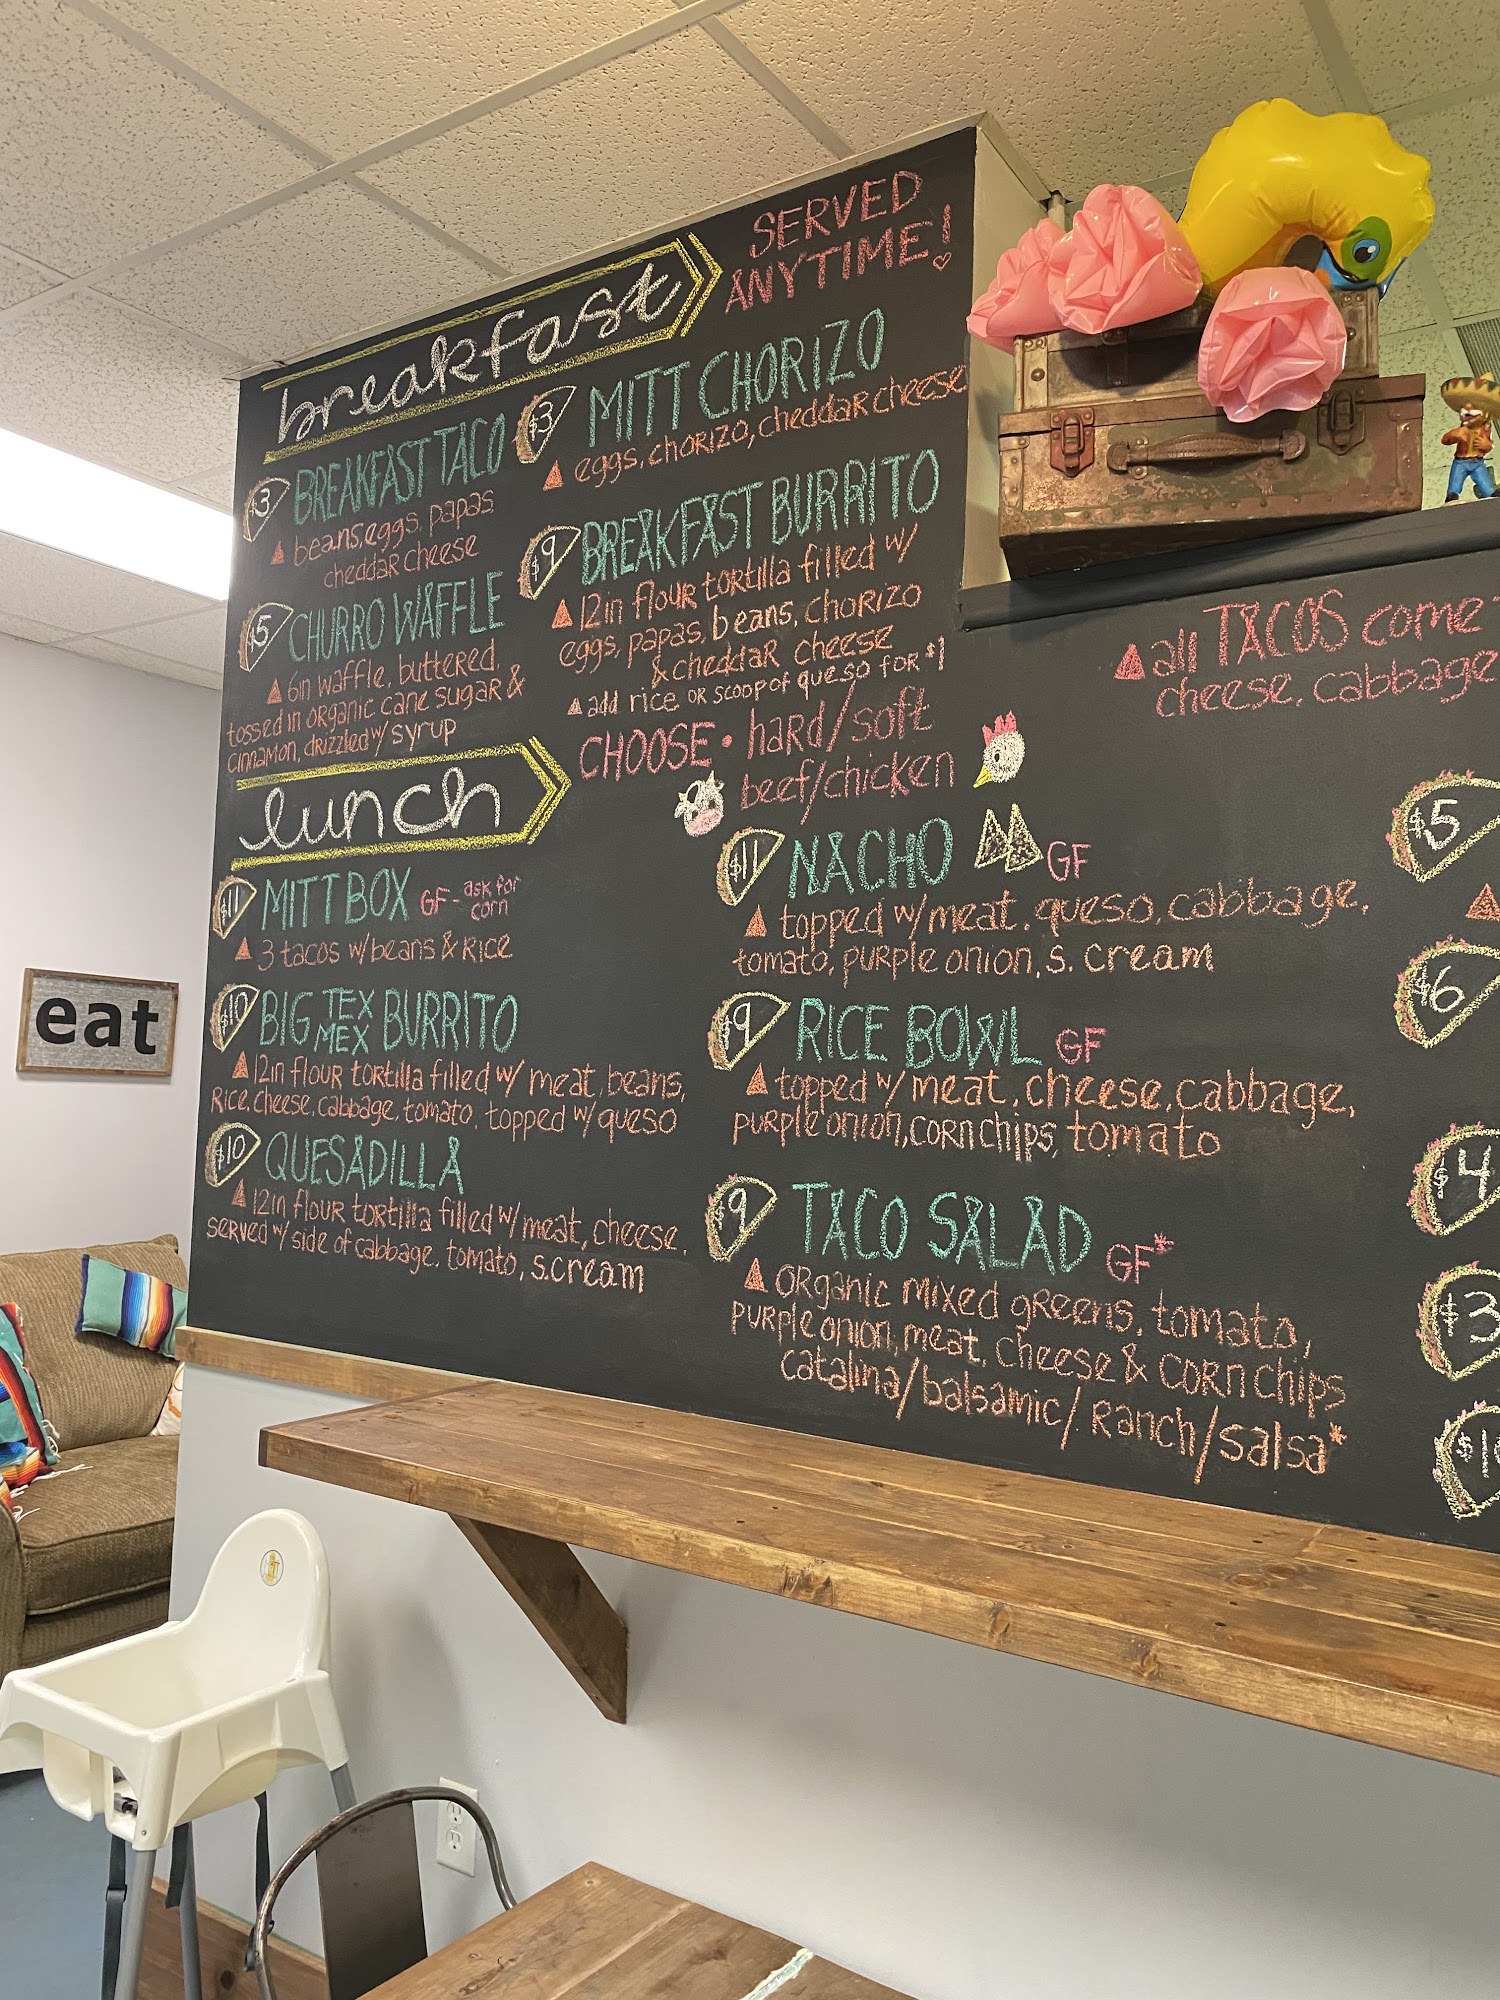 breakfast
SERVED
ANYTIME!
$3 BREAKFAST TACO
beans, eggs, papas
cheddar cheese
$5 CHURRO WAFFLE
6in waffle, buttered,
tossed in organic cane sugar &
cinnamon, drizzled w/ syrup
$3 MITT CHORIZO
eggs, chorizo, cheddar cheese
$9 BREAKFAST BURRITO
12in flour tortilla filled w/
eggs, papas, beans, chorizo
& cheddar cheese
add rice or scoop of queso for $1
lunch
CHOOSE • hard/soft
beef/chicken
$11 MITT BOX GF - ask for
corn
3 tacos w/beans & Rice
$10 BIG TEX MEX BURRITO
12in flour tortilla filled w/ meat, beans,
Rice, cheese, cabbage, tomato, topped w/ queso
$10 QUESADILLA
12in flour tortilla filled w/ meat, cheese,
served w/ side of cabbage, tomato, s. cream
$11 NACHO GF
topped w/ meat, queso, cabbage,
tomato, purple onion, s. cream
$9 RICE BOWL GF
topped w/ meat, cheese, cabbage,
purple onion, corn chips, tomato
$9 TACO SALAD GF*
organic mixed greens, tomato,
purple onion, meat, cheese & corn chips
catalina/balsamic/Ranch/salsa*
all TACOS come
cheese, cabbage
$5
$6
$4
$3
eat